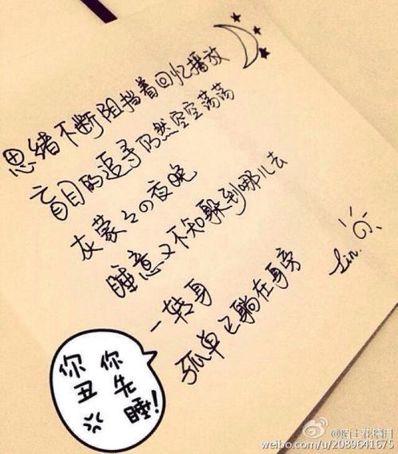 思绪不断阻挡着回忆播放
盲目的追寻仍然空空荡荡
灰蒙々の夜晚
睡意又不知躲到哪儿去
一转身
孤单已躺在身旁
Lin.
你丑
你先
睡!
weibo.com/u/2089641675